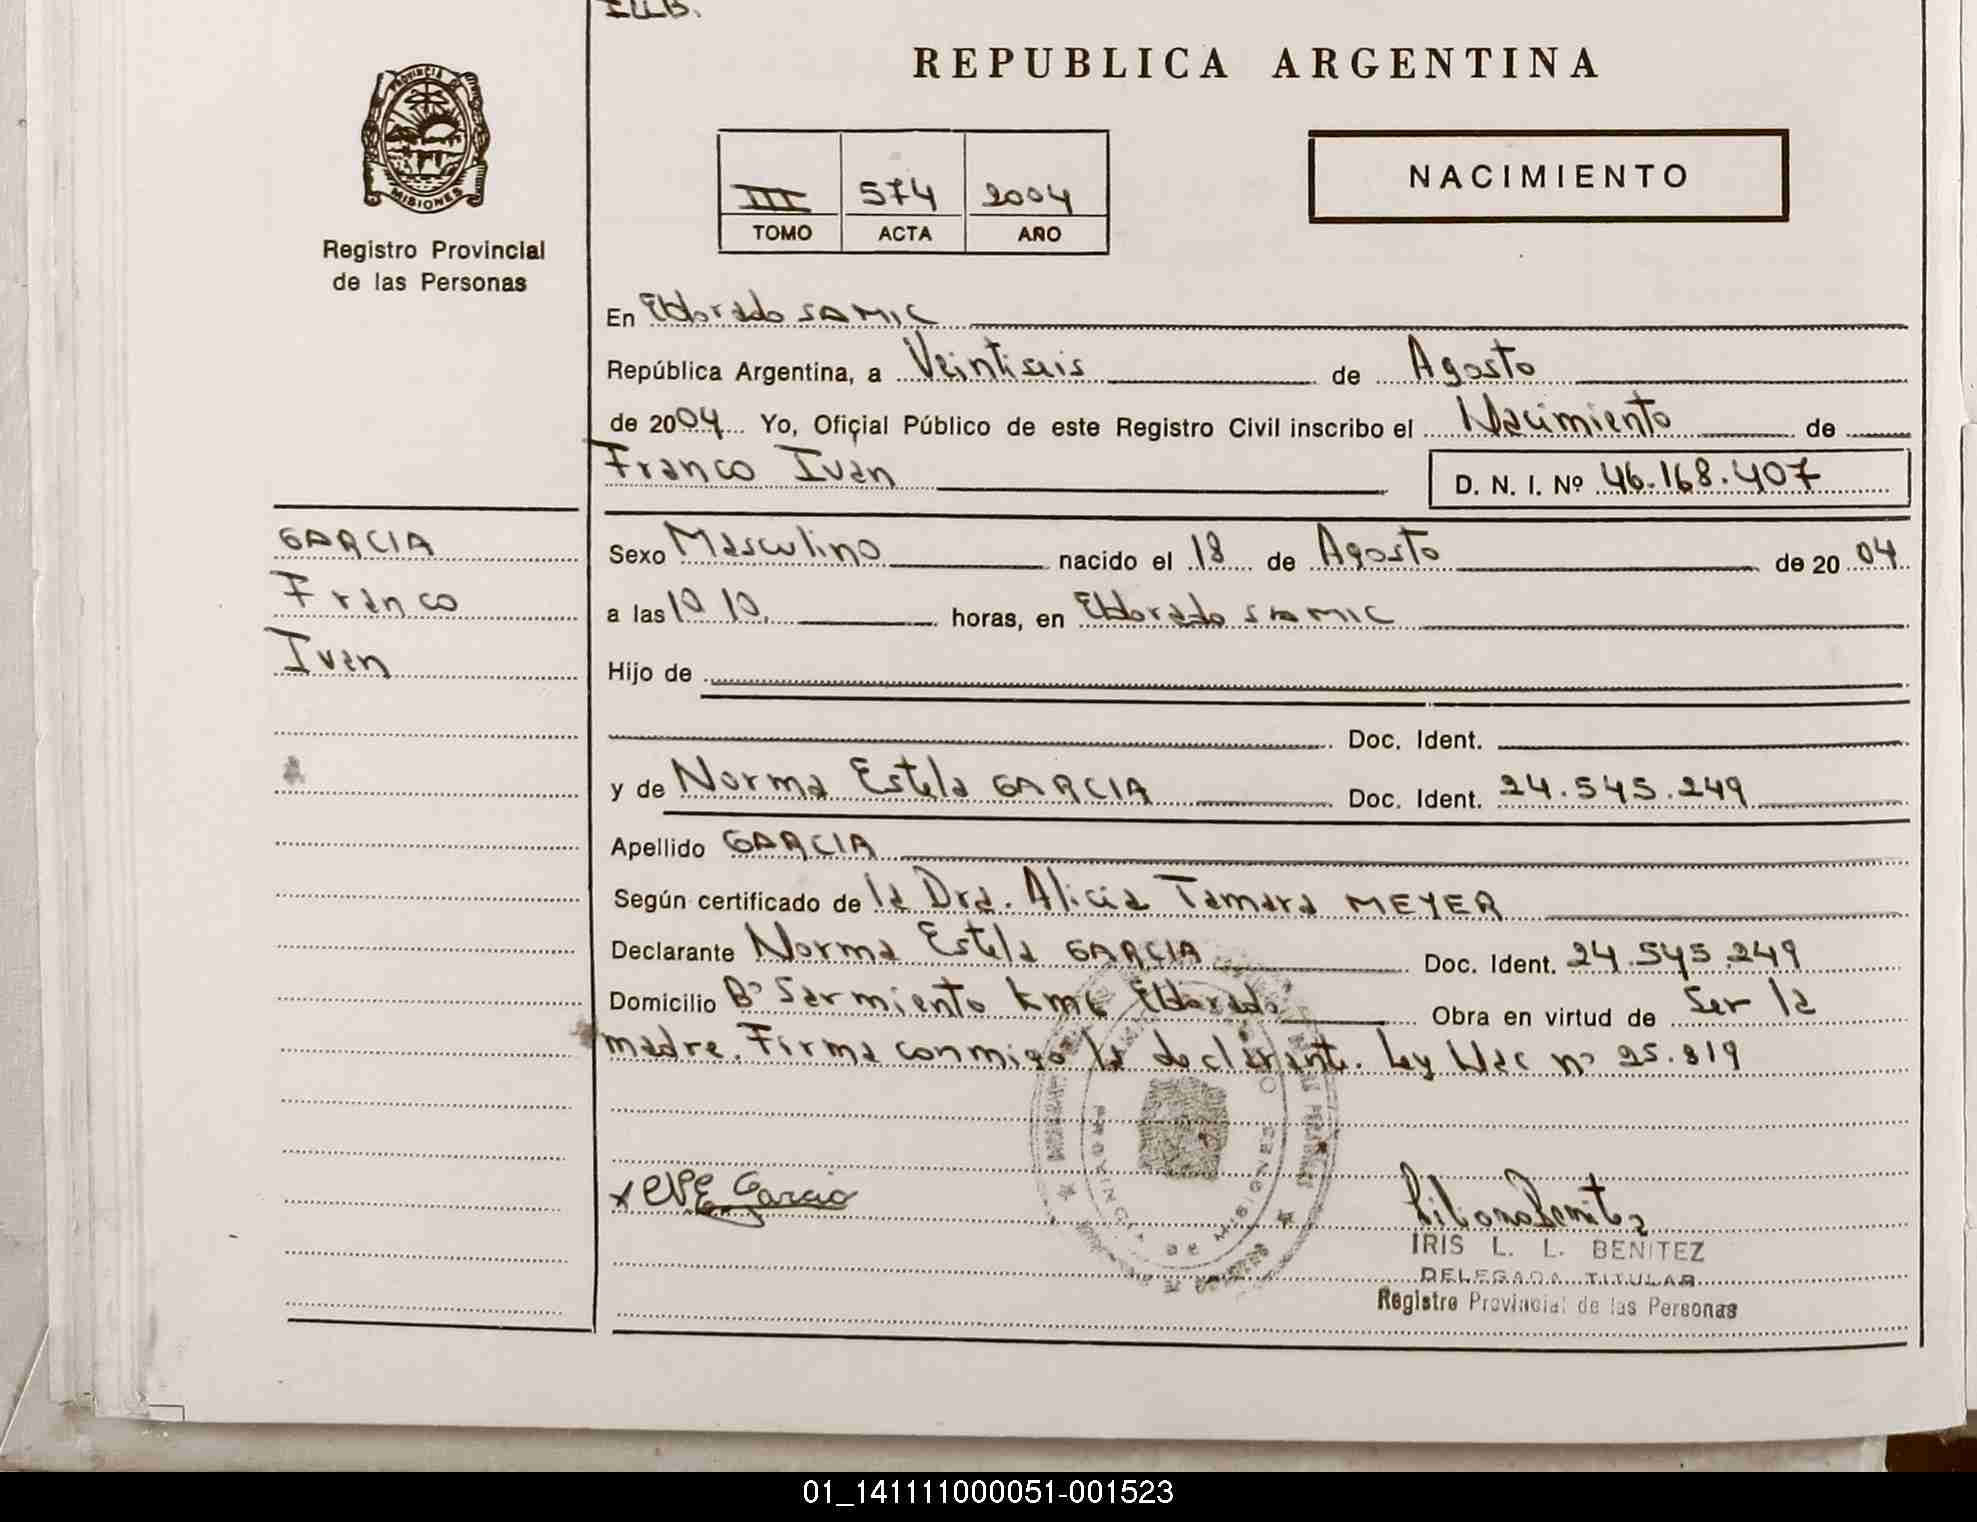 REPUBLICA ARGENTINA
PROVINCIA
MISIONES
Registro Provincial
de las Personas
III 574 2004
TOMO ACTA AÑO
NACIMIENTO
En Eldorado SAMIC
República Argentina, a Veintiseis de Agosto
de 2004 Yo, Oficial Público de este Registro Civil inscribo el Nacimiento de
Franco Ivan D. N. I. Nº 46.168.407
GARCIA
Franco
Ivan
Sexo Masculino nacido el 18 de Agosto de 20 04
a las 10 10. horas, en Eldorado SAMIC
Hijo de
Doc. Ident.
y de Norma Estela GARCIA Doc. Ident. 24.545.249
Apellido GARCIA
Según certificado de la Dra. Alicia Tamara MEYER
Declarante Norma Estela GARCIA Doc. Ident. 24.545.249
Domicilio Bº Sarmiento km 6 Eldorado Obra en virtud de Ser la
madre. Firma conmigo la declarante. Ley Nac nº 25.819
PROVINCIA DE MISIONES
x EVE Garcia
Liliana Benitez
IRIS L. L. BENITEZ
DELEGADA TITULAR
Registro Provincial de las Personas
01_141111000051-001523